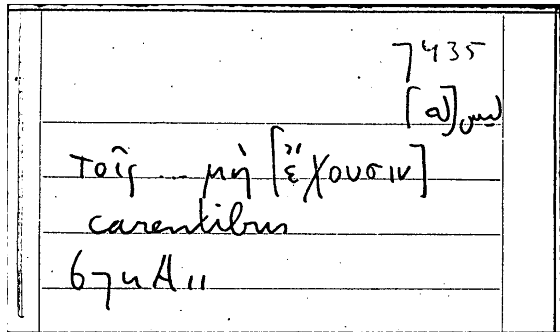 7435
[ه]ليس
τοῖς ... μὴ [ἔχουσιν]
carentibus
67u A 11